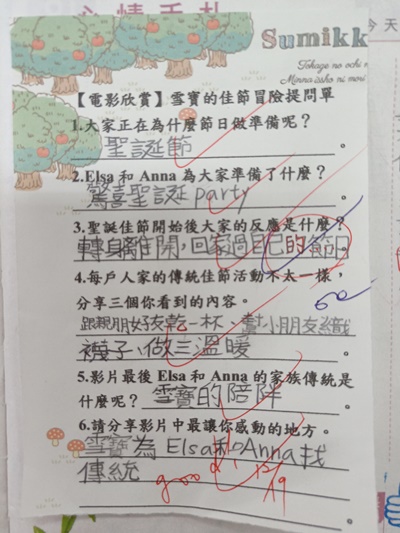 心情手札
今天
Sumikk
Tokage no ochi n
Minna issho ni mori
【電影欣賞】雪寶的佳節冒險提問單
1.大家正在為什麼節日做準備呢？
聖誕節。
2.Elsa 和 Anna 為大家準備了什麼？
驚喜聖誕 party。
3.聖誕佳節開始後大家的反應是什麼？
轉身離開,回家過自己的節日
4.每戶人家的傳統佳節活動不太一樣，
分享三個你看到的內容。
跟親朋好友乾一杯、幫小朋友織
襪子、做三溫暖。
5.影片最後 Elsa 和 Anna 的家族傳統是
什麼呢？雪寶的陪伴。
6.請分享影片中最讓你感動的地方。
雪寶為 Elsa和Anna找
傳統
good! 12/19